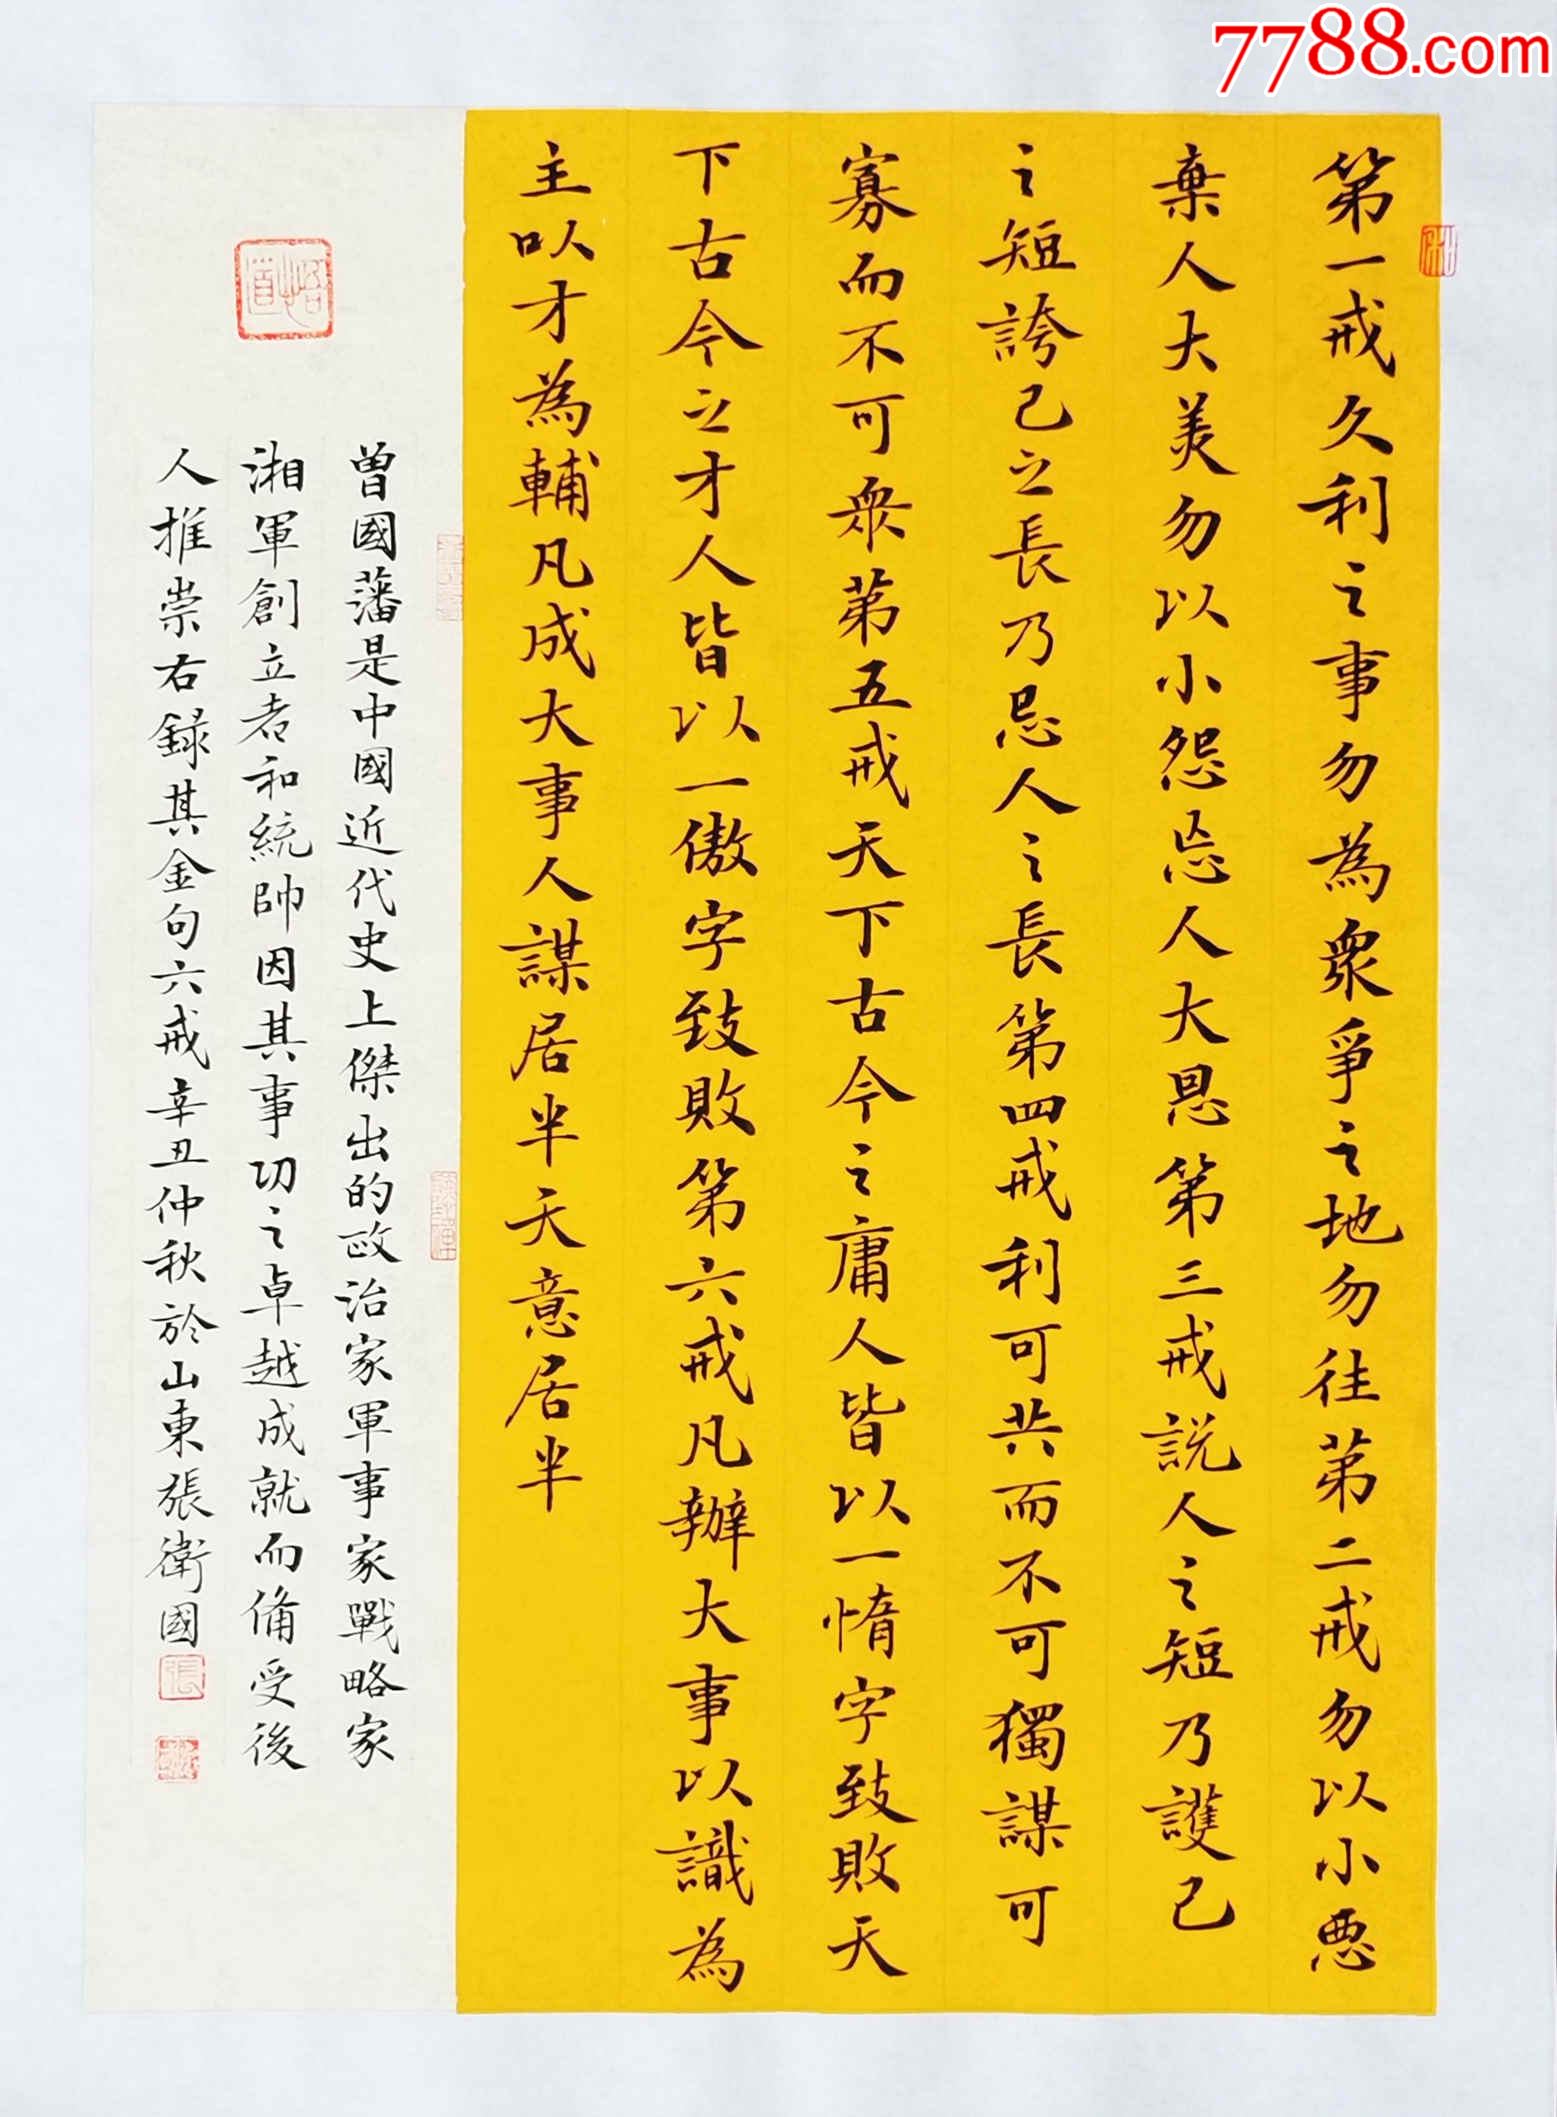 7788.com
第一戒久利之事勿為衆爭之地勿往第二戒勿以小惡
棄人大美勿以小怨忘人大恩第三戒説人之短乃護己
之短誇己之長乃忌人之長第四戒利可共而不可獨謀可
寡而不可衆第五戒天下古今之庸人皆以一惰字致敗天
下古今之才人皆以一傲字致敗第六戒凡辦大事以識為
主以才為輔凡成大事人謀居半天意居半
曾國藩是中國近代史上傑出的政治家軍事家戰略家
湘軍創立者和統帥因其事功之卓越成就而備受後
人推崇右録其金句六戒辛丑仲秋於山東張衛國
悟道
張